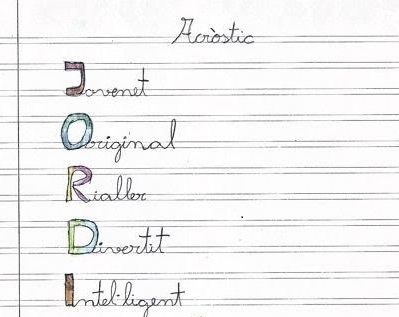 Acròstic
Jovenet
Original
Rialler
Divertit
Intel·ligent